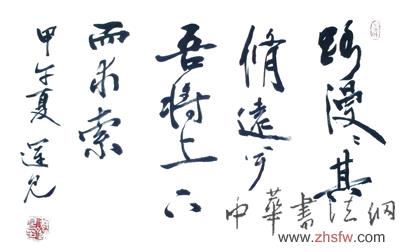 路漫々其
脩遠兮
吾将上下
而求索
甲午夏
中華書法網
www.zhsfw.com